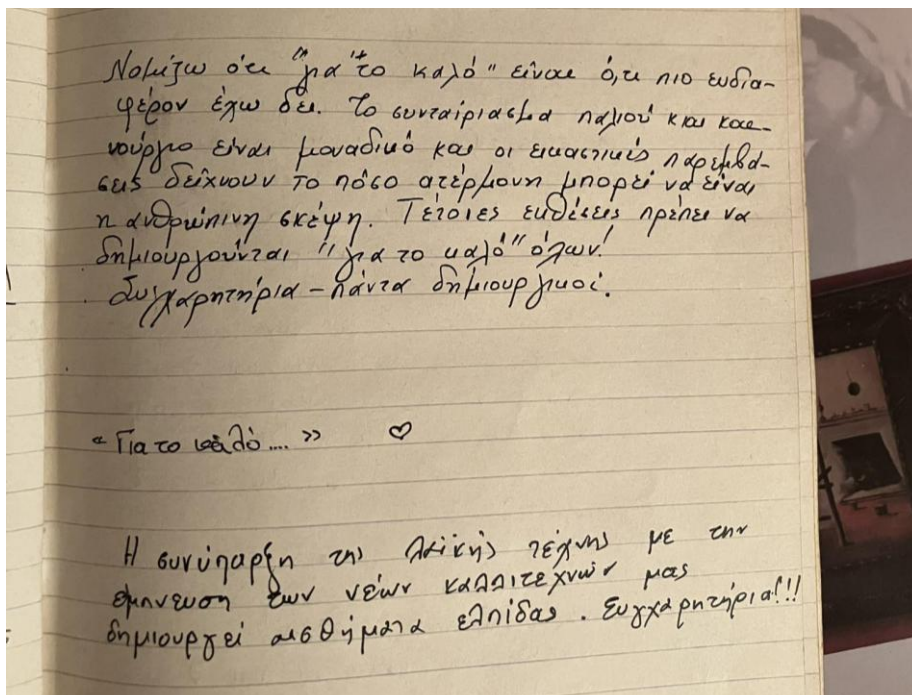 Νομίζω ότι "για το καλό" είναι ό,τι πιο ενδια-
φέρον έχω δει. Το συνταίριασμα παλιού και και-
νούργιο είναι μοναδικό και οι εικαστικές παρεμβά-
σεις δείχνουν το πόσο ατέρμονη μπορεί να είναι
η ανθρώπινη σκέψη. Τέτοιες εκθέσεις πρέπει να
δημιουργούνται "για το καλό" όλων!
Συγχαρητήρια - πάντα δημιουργικοί.
«Για το καλό....» ♡
Η συνύπαρξη της λαϊκής τέχνης με την
έμπνευση των νέων καλλιτεχνών μας
δημιουργεί αισθήματα ελπίδας. Συγχαρητήρια!!!